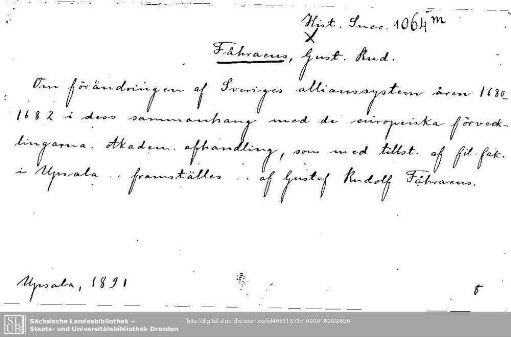 Hist. Suec. 1064 m
X
Fåhraeus, Gust. Rud.
Om förändringen af Sveriges allianssystem åren 1680-
1682 i dess sammanhang med de europeiska förveck-
lingarna. Akadem. afhandling, som med tillst. af fil. fak.
i Upsala .. framställes .. af Gustaf Rudolf Fåhraeus.
Upsala, 1891
8
SLUB
Sächsische Landesbibliothek –
Staats- und Universitätsbibliothek Dresden